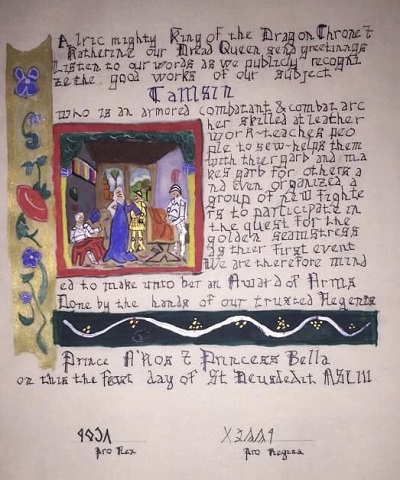 Alric mighty King of the Dragon Throne &
Katherine our Dread Queen send greetings
Listen to our words as we publicly recogni
ze the good works of our subject
Tamsin
who is an armored combatant & combat arc
her skilled at leather
work-teaches peo
ple to sew-helps them
with thier garb and ma
kes garb for others a
nd even organized a
group of new fighte
rs to participate in
the quest for the
golden seamstress
as thier first event
We are therefore mind
ed to make unto her an Award of Arms
Done by the hands of our trusted Regents
Prince A'Kos & Princess Bella
on this the feast day of St Deusdedit AS LIII
Pro Rex
Pro Regina